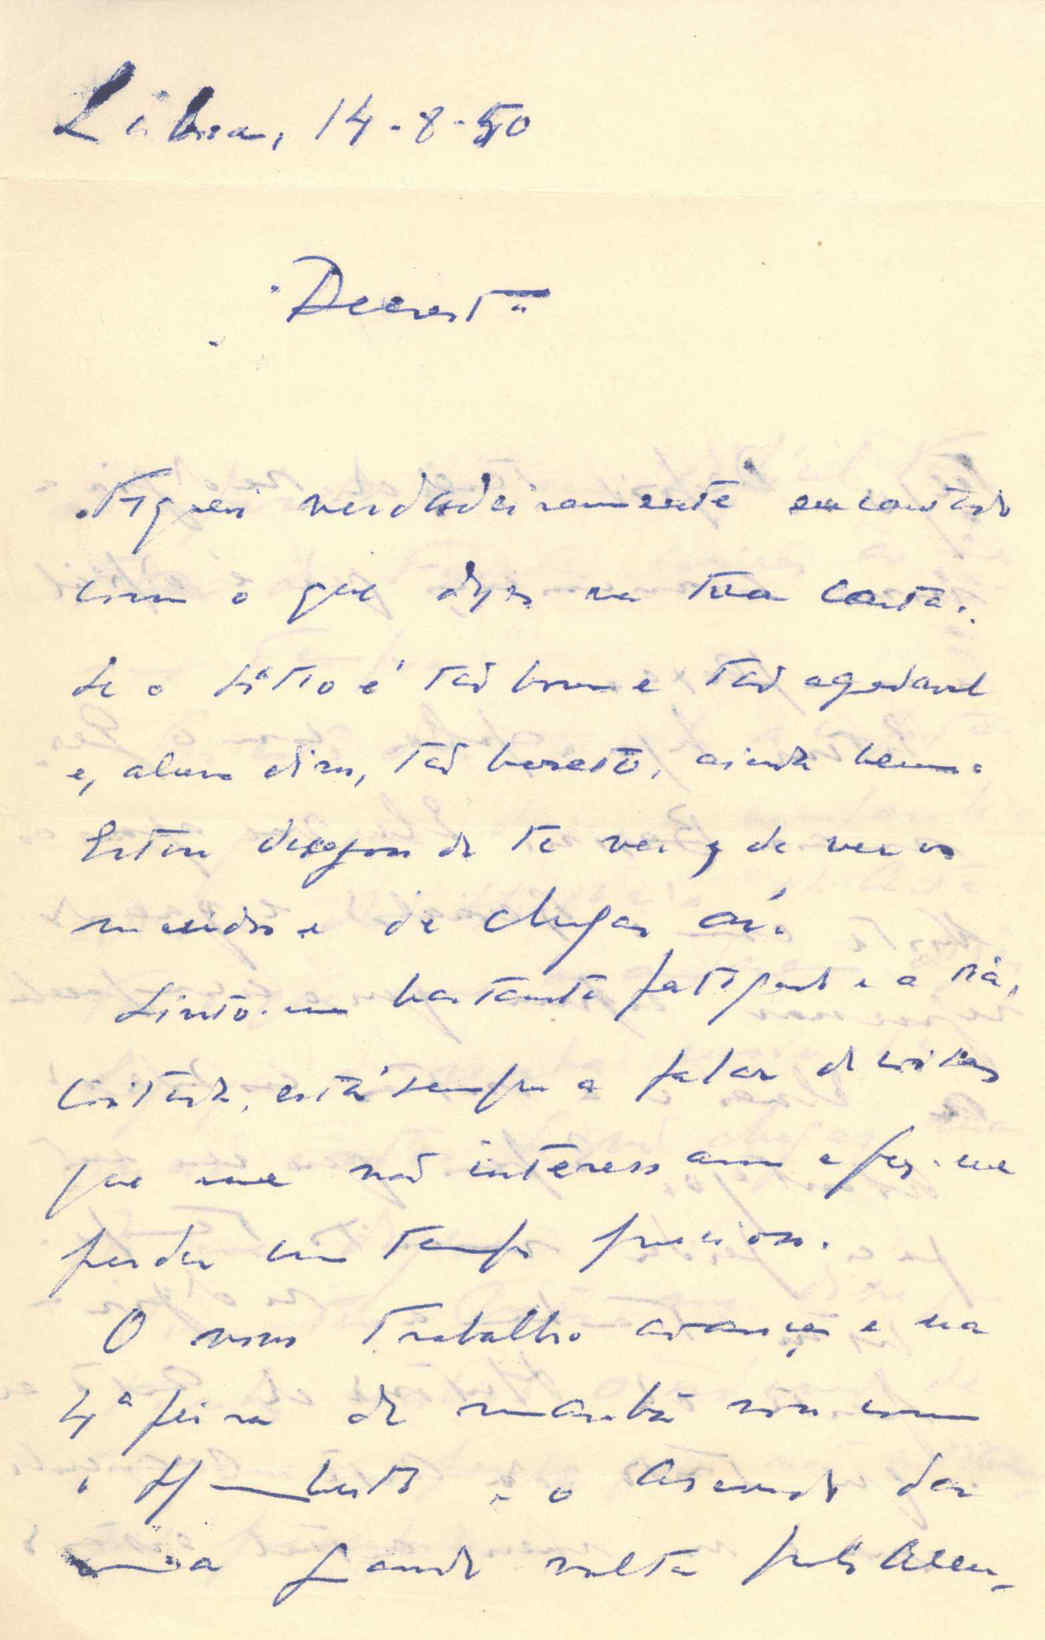 Lisboa, 14-8-50
Fiquei verdadeiramente encantado
com o que dizes na tua carta.
Se o sitio é tão bom e tão agradavel
e, alem disso, tão barato, ainda bem.
Estou desejoso de te ver e de ver os
meninos e de chegar aí.
Sinto-me bastante fatigado e a
está sempre a falar de coisas
que me não interessam e faz-me
perder um tempo precioso.
O nosso trabalho avança e na
4ª feira de manhã vou com
o Humberto e o dar
uma grande volta pelo Alen-